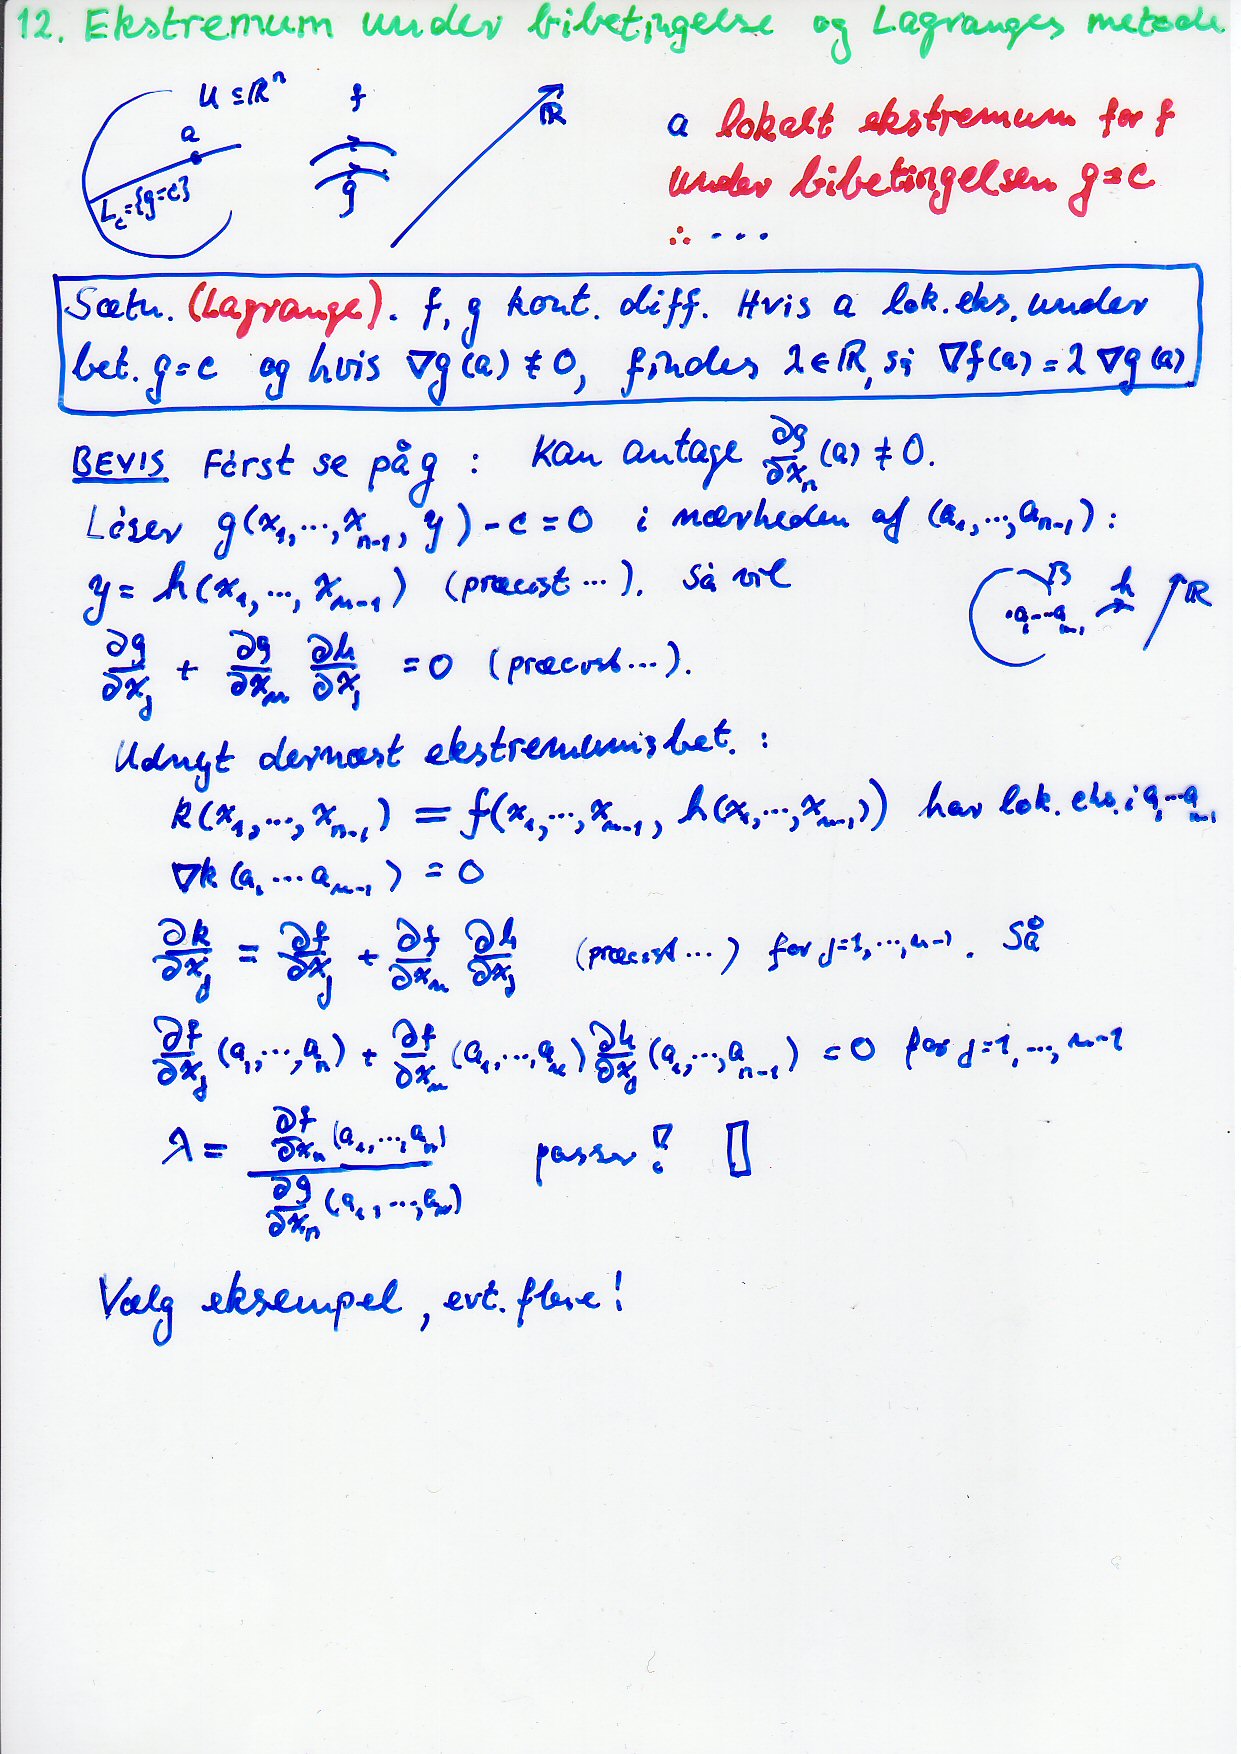 12. Ekstremum under bibetingelse og Lagranges metode
U ⊆ ℝⁿ
a
L_c = {g=c}
f
g
ℝ
a lokalt ekstremum for f
under bibetingelsen g=c
∴ ...
Sætn. (Lagrange). f, g kont. diff. Hvis a lok. eks. under
bet. g=c og hvis ∇g(a) ≠ 0, findes λ∈ℝ, så ∇f(a) = λ∇g(a)
BEVIS Først se på g : Kan antage ∂g/∂x_n (a) ≠ 0.
Løser g(x₁,...,x_{n-1}, y) - c = 0 i nærheden af (a₁,...,a_{n-1}) :
y = h(x₁,...,x_{n-1}) (præcist ...). Så vil
B
a₁...a_{n-1}
h
ℝ
∂g/∂x_j + ∂g/∂x_n ∂h/∂x_j = 0 (præcist ...).
Udnyt dernæst ekstremumsbet. :
k(x₁,...,x_{n-1}) = f(x₁,...,x_{n-1}, h(x₁,...,x_{n-1})) har lok. eks. i a₁...a_{n-1}
∇k(a₁...a_{n-1}) = 0
∂k/∂x_j = ∂f/∂x_j + ∂f/∂x_n ∂h/∂x_j (præcist ...) for j=1,...,n-1. Så
∂f/∂x_j (a₁,...,a_n) + ∂f/∂x_n (a₁,...,a_n) ∂h/∂x_j (a₁,...,a_{n-1}) = 0 for j=1,...,n-1
λ = ∂f/∂x_n (a₁,...,a_n) / ∂g/∂x_n (a₁,...,a_n) passer! ▯
Vælg eksempel, evt. flere!